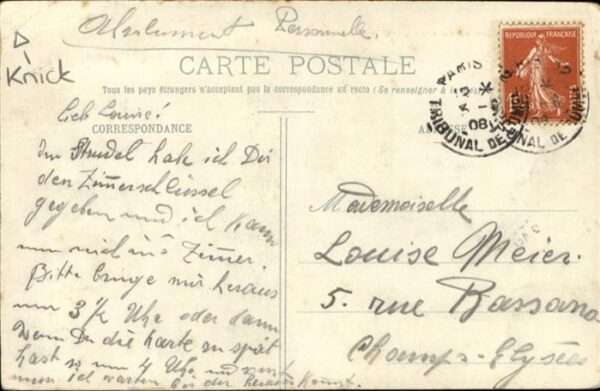 Absolument Personnelle.
Knick
REPUBLIQUE FRANÇAISE
CARTE POSTALE
Tous les pays étrangers n'acceptent pas la correspondance au recto (Se renseigner à la
PARIS
08
TRIBUNAL DE
Lieb Louise!
CORRESPONDANCE
Im Strudel hab ich Dir
den Zimmerschlüssel
gegeben und ich kann
nun nich ins Zimmer.
Bitte bringe mir heraus
um 3 ½ Uhr oder dann
Wenn Du die Karte zu spät
hast so um 4 Uhr und
ich warten bei der
Mademoiselle
Louise Meier.
5. rue Bassano
Champs-Elysées